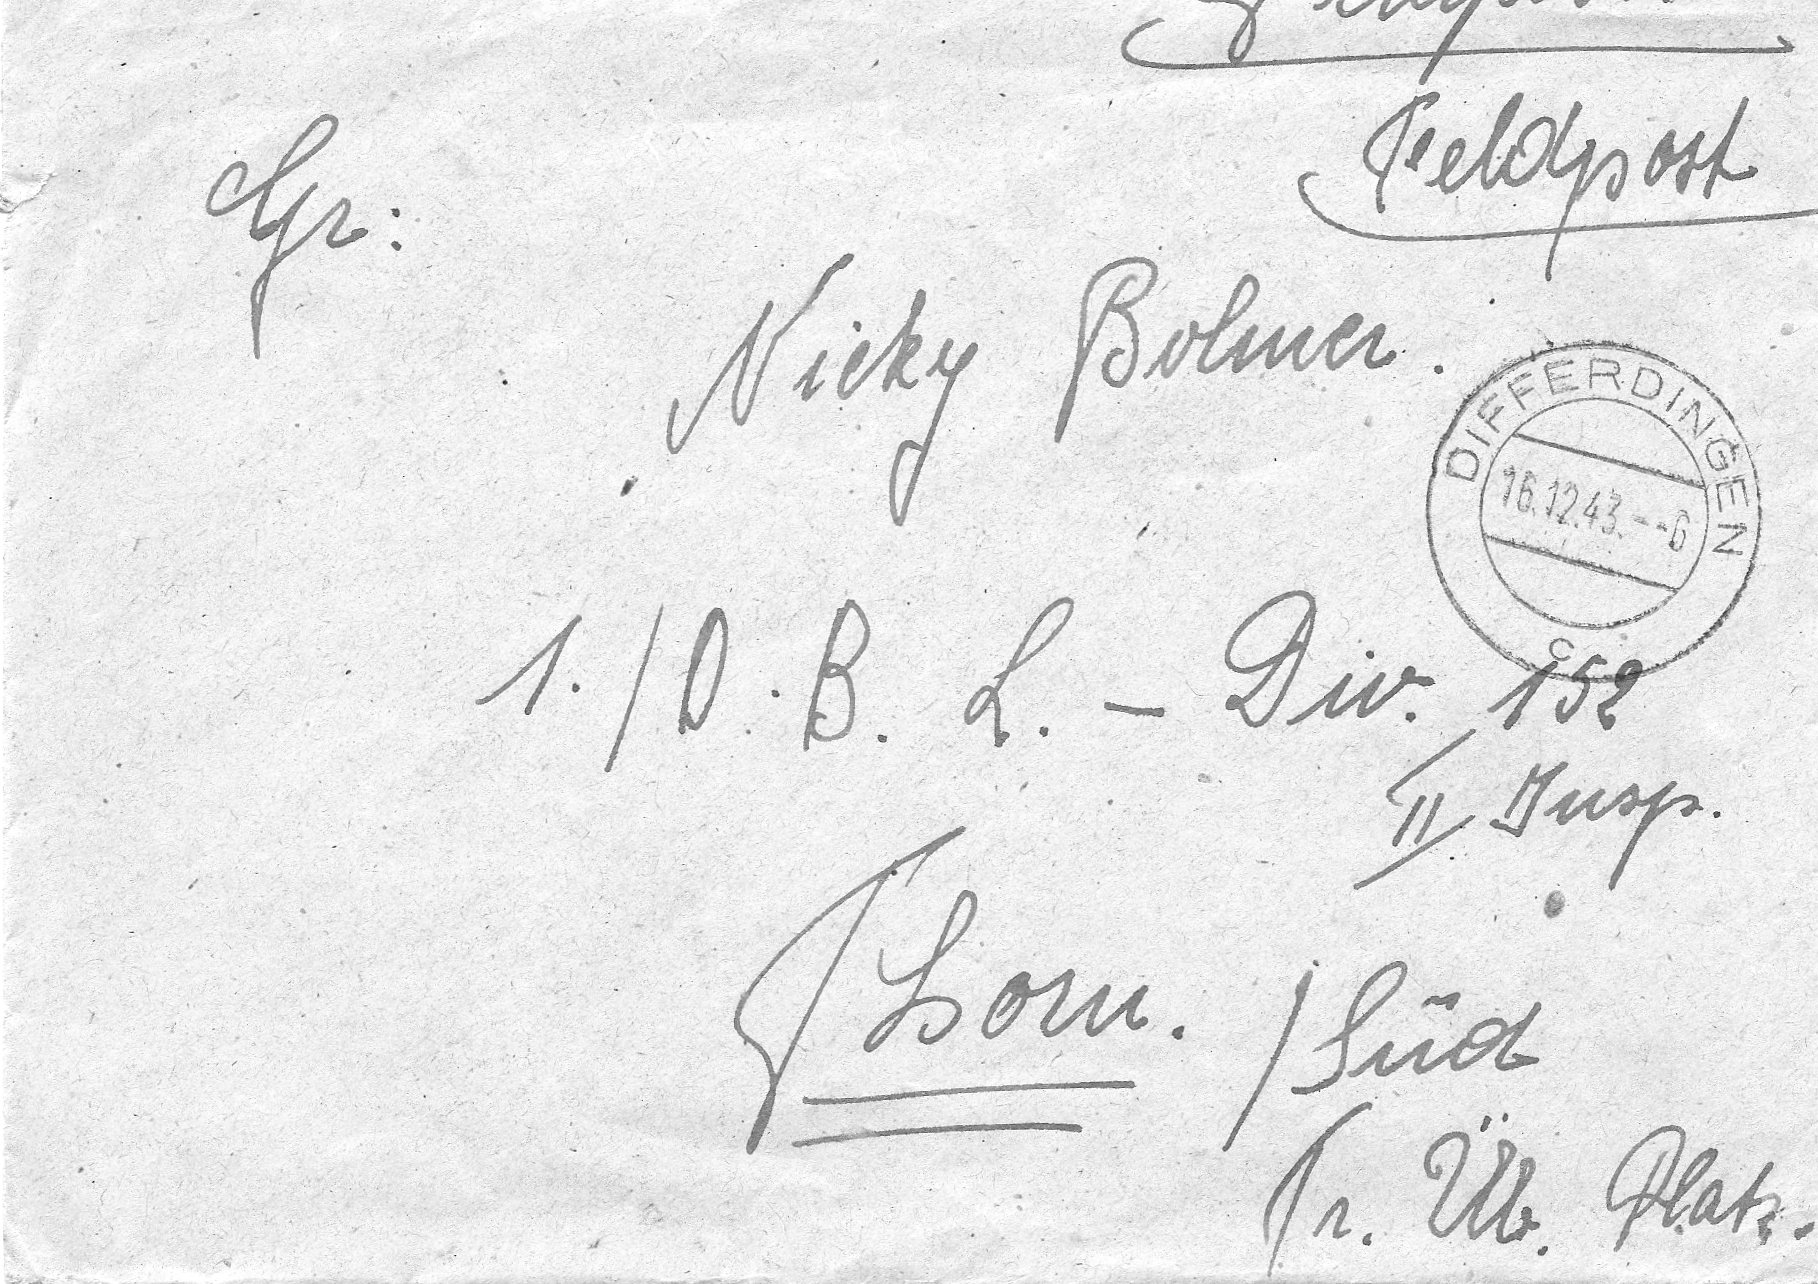 Feldpost
Feldpost
Gr:
Nicky Bolmer.
DIFFERDINGEN
16.12.43.--6
c
1./D.B.L.-Div. 152
II Insp.
Thorn. /Süd
Tr. Üb. Platz.